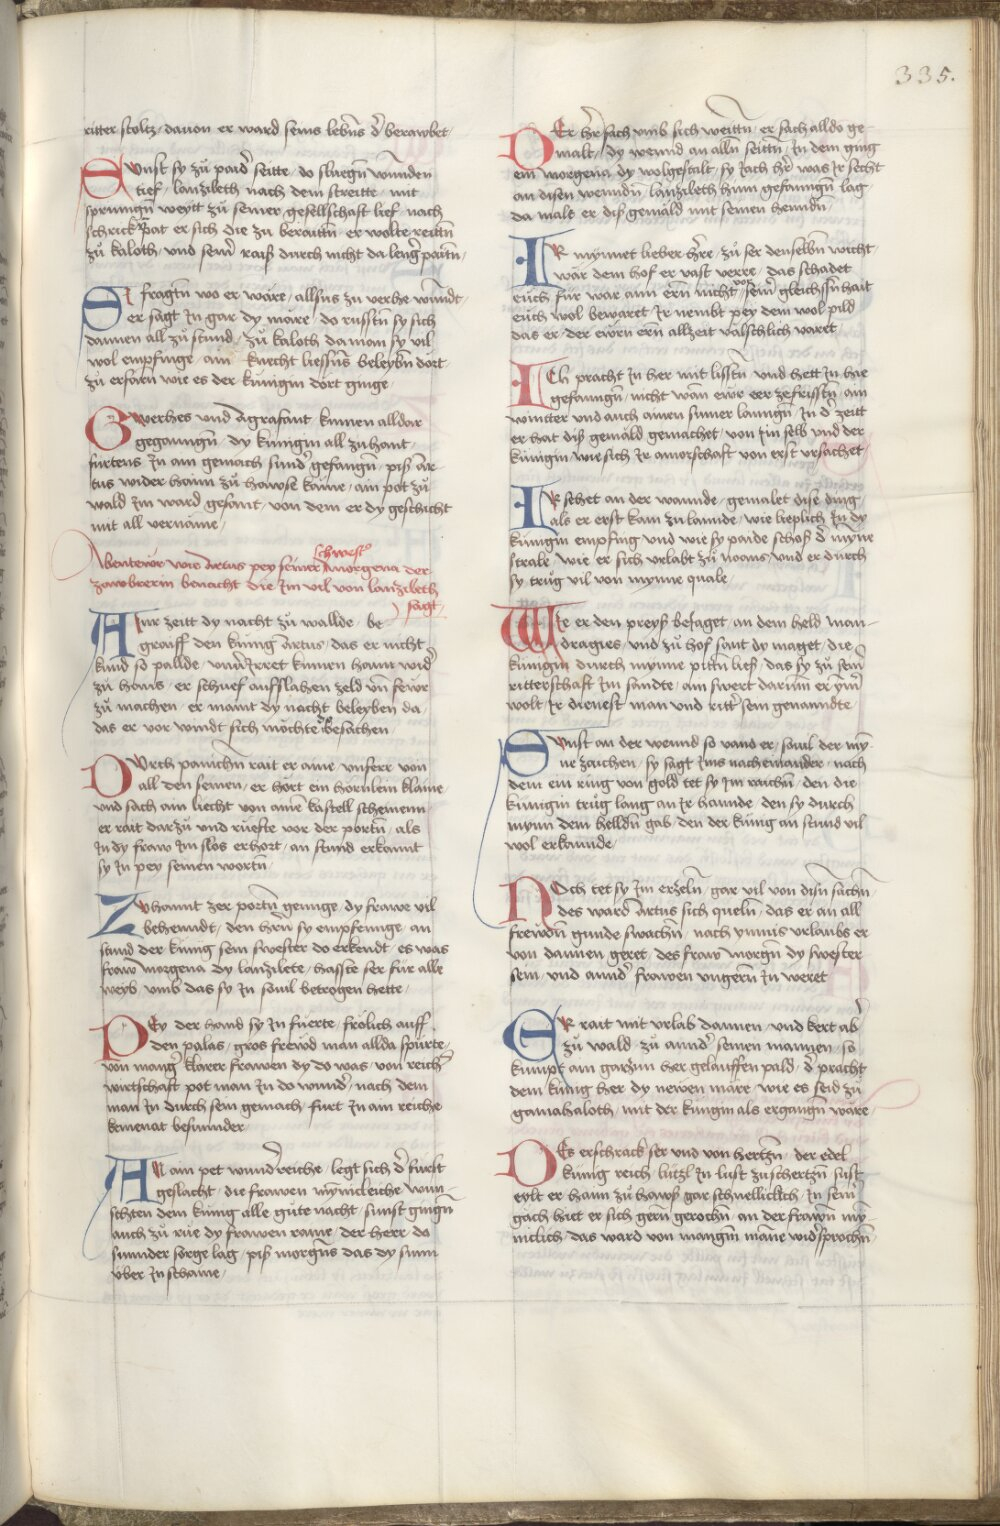 335.
ritter stoltz / dauon er ward seins lebñs d̃ berawbet /
SVnst sy zů paid̃ seitte / do sluegñ wunden
tief / lanzileth nach dem streitte / mit
sprungñ weytt zů seiner gesellschaft lief / nach
schrick pat er sich die zu beraittñ / er wolte reittñ
zů kaloth / vnd sein̄ raiß durch nicht da leng̃ paittñ /
SI fragtñ wo er wäre / allsus zu verhe wundt /
er sagt Jn gar dy märe / do russtñ sy sich
dannen all zů stund / zů kaloth da man sy vil
wol empfinge / ain knecht liessñs beleybñ dort
zů erfarñ wie es der kunigin dort ginge /
GWerhes vnd Agrafant kumen alldar
gegangñ / dy kunigin all zu hant
fürtens Jn ain gemach sund̃ gefangñ / piß Ar
tus wider haim zů hawse käme / ain pot zů
wald Jm ward gesant / von dem er dy geschicht
mit all vername /
Abentewr wie Artus pey seiner schwest̃ morgena der
zawbrerin benacht die Jm vil von lanzileth
sagt
AInr zeitt dy nacht zů wallde / be
graiff den kunig Artus / das er nicht
kund so pallde / vnuerirret kumen haim wid̃
zů haus / er schuef aufslahen zeld vñ fewr
zů machen / er maint dy nacht beleyben da
das er vor windt sich möchte besachen /
DVrch panichñ rait er aine / vnferr von
all den seinen / er hört ein hörnlein klaine /
vnd sach ain liecht von aine kastell scheinenn
er rait darzů vnd ruefte vor der portñ / als
Jn dy fraw Jm slos erhort / an stund erkannt
sy Jn pey seinen wortñ /
ZVhannt zer portñ geinge / dy frawe vil
behenndt / den hrñ sy empfeinge / an
stund der kunig sein swester do erkendt / es was
fraw morgena dy lanzilete / hasste ser für alle
weyb vmb das sy Jn souil betrogen hette /
PEy der hand sy Jn fuerte / frölich auff
den palas / gros frewd man allda spürte /
von mang̃ klarer frawen dy do was / von reich̃
wirtschaft pot man Jn do wund̃ / nach dem
man Jn durch sein gemach / furt Jn ain reiche
kemenat besunnder
AN ain pet wund̃ reiche / legt sich d̃ fürst
geslacht / die frawen mynicleiche / wun
schten dem kunig alle gute nacht / sunst gingñ
auch zů rue dy frawen raine / der herr do
sunnder sorge lag / piß morgñs das dy sunn
vber Jn schaine /
DEr hr̃ sach vmb sich weittñ / er sach alldo ge
malt / dy wennd an allñ seittñ / Jn dem ging
ein morgena dy wolgestalt / sy sach hr̃ was Jr secht
an disen wenndñ / lanzileth hinn gefanngñ lag
da male er diß gemäld mit seinen henndñ /
IR mynnet lieber hr̃re / zů ser denselbñ wicht
wär dem hof er vast verre / das schadet
euch für war ann erñ nicht / vor sein̄ gleichssnhait
euch wol bewaret / Jr nembt pey dem wol pild
das er / der ewrn erñ allzeit välschlich varet /
ICh pracht Jn her mit lisstñ / vnd hett Jn hie
gefanngñ / nicht wan ewr eer ze fristtñ / ain
wintter vnd auch ainen sumer lanngñ / Jn d̃ zeitt
er hat diß gemäld gemachet / von Jm selb vnd der
künigin / wie sich Jr amorschaft von erst vrsachet /
IR sehet an der wannde / gemalet dise ding /
als er erst kam zu lannde / wie lieplich Jn dy
kunigin empfing vnd wie sy paide schoß d̃ myne
strale / wie er sich vrlabt zů noaus / vnd er durch
sy trůg vil von mynne quale /
WIe er den preyß beiaget / an dem held man
dragies / vnd zů hof sant dy maget / die
künigin durch mynne pittñ ließ / das sy zů sein̄
ritterschaft Jm sandte / ain swert darum̄ er ym̄
wolt Jr dienest man vnd rittr̃ sein genanndte /
SVnst an der wennd so vand er / souil der my
ne zaichen / sy sagt Jms nach einander / nach
dem ein ring von gold tet sy Jm raichñ / den die
künigin trůg lang an Jr hannde / den sy durch
mynn dem helldñ gab / den der künig an stund vil
wol erkannde /
NOch tet sy Jm erzelñ / gar vil von disñ sachñ
des ward Artus sich quelñ / das er an all
frewdñ gunde swachñ / nach ynnis vrlaubs er
von dannen geret / des fraw morgñ dy swester
sein / vnd annd̃ frawen vngerñ Jn weret
ER rait mit vrlab dannen / vnd kert ab̃
zů wald / zů annd̃ seinen mannen / so
kumpt ain garzun her gelauffen pald / d̃ pracht
dem kunig her dy newen märe / wie es seid zů
gamahaloth / mit der kungin als ergangñ wäre /
DEs erschrack ser vnd von hertzñ / der edel
künig reich / lutzl Jn lust zu schertzñ / sust
eylt er haim zů hawß gar schnelliclich / Jn sein̄
gäch hiet er sich gern gerochñ / an der frawñ my
niclich / das ward von mangm̄ mane wid̃sprochñ